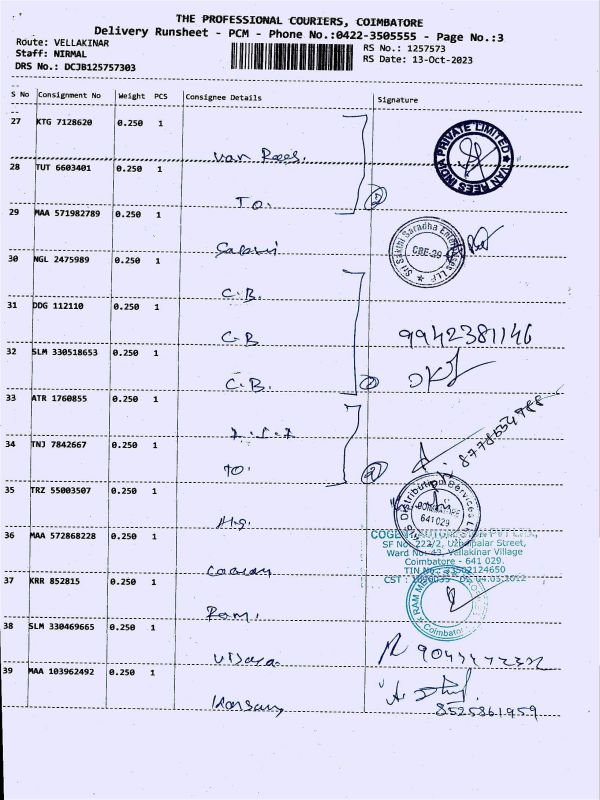 THE PROFESSIONAL COURIERS, COIMBATORE
Delivery Runsheet - PCM - Phone No.:0422-3505555 - Page No.:3
Route: VELLAKINAR
Staff: NIRMAL
DRS No.: DCJB125757303
RS No.: 1257573
RS Date: 13-Oct-2023
S No Consignment No Weight PCS Consignee Details Signature
27 KTG 7128620 0.250 1
Van Rees.
VAN REES INDIA PRIVATE LIMITED
28 TUT 6603401 0.250 1
TO. 2
29 MAA 571982789 0.250 1
Sakthi
Sri Sakthi Saradha Enterprises LLP
CBE-29
30 NGL 2475989 0.250 1
C.B.
31 DDG 112110 0.250 1
C.B 9942381146
32 SLM 330518653 0.250 1
C.B.
33 ATR 1760855 0.250 1
8778634788
34 TNJ 7842667 0.250 1
TO. 2
35 TRZ 55003507 0.250 1
H.S.
Distribution Services
COIMBATORE
641 029
36 MAA 572868228 0.250 1
SF No. 222/2, Street,
Ward No. 43, Vellakinar Village
Coimbatore - 641 029.
TIN No.: 33502124650
CST :
37 KRR 852815 0.250 1
Ram.
RAM
Coimbatore
38 SLM 330469665 0.250 1
Vijaya
39 MAA 103962492 0.250 1
8525861959